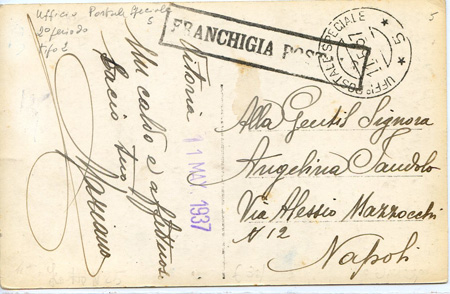 Uffici Postali Speciali
5
2º periodo
tipo 2
5
FRANCHIGIA POST
UFFº POSTALE SPECIALE
* 5 *
Vitoria
11 MAY. 1937
Un caldo e affettuos.
bacio tuo
Mariano
Alla Gentil Signora
Angelina Tandolo
Via Alessio Mazzocchi
Nº 12
Napoli